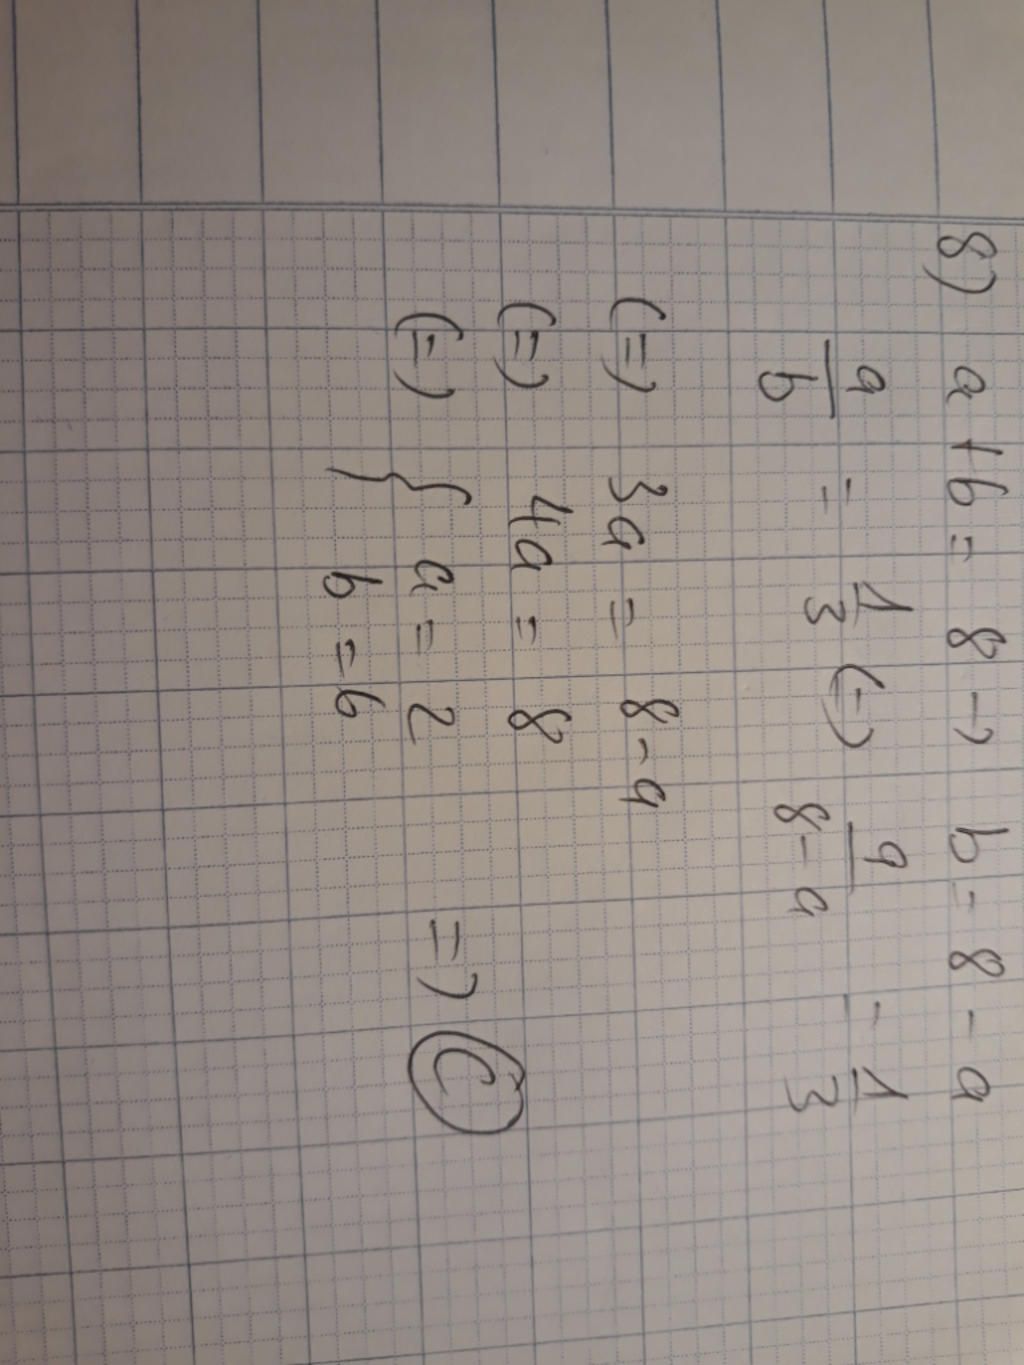 8) a + b = 8 → b = 8 - a
a/b = 1/3 (=) a/8-a = 1/3
(=) 3a = 8 - a
(=) 4a = 8
(=) { a = 2 => C
b = 6